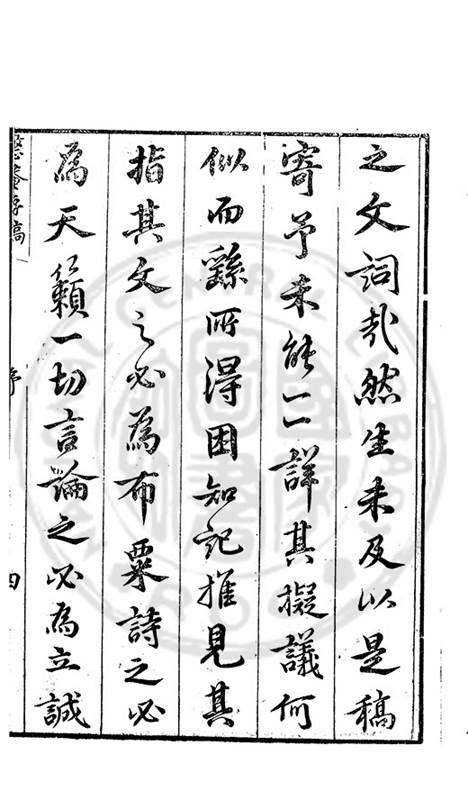 之文詞哉然生未及以是稿
寄予未能一一詳其擬議何
似而繇所得困知記推見其
指其文之必為布粟詩之必
為天籟一切言論之必為立誠
存稿 序 四